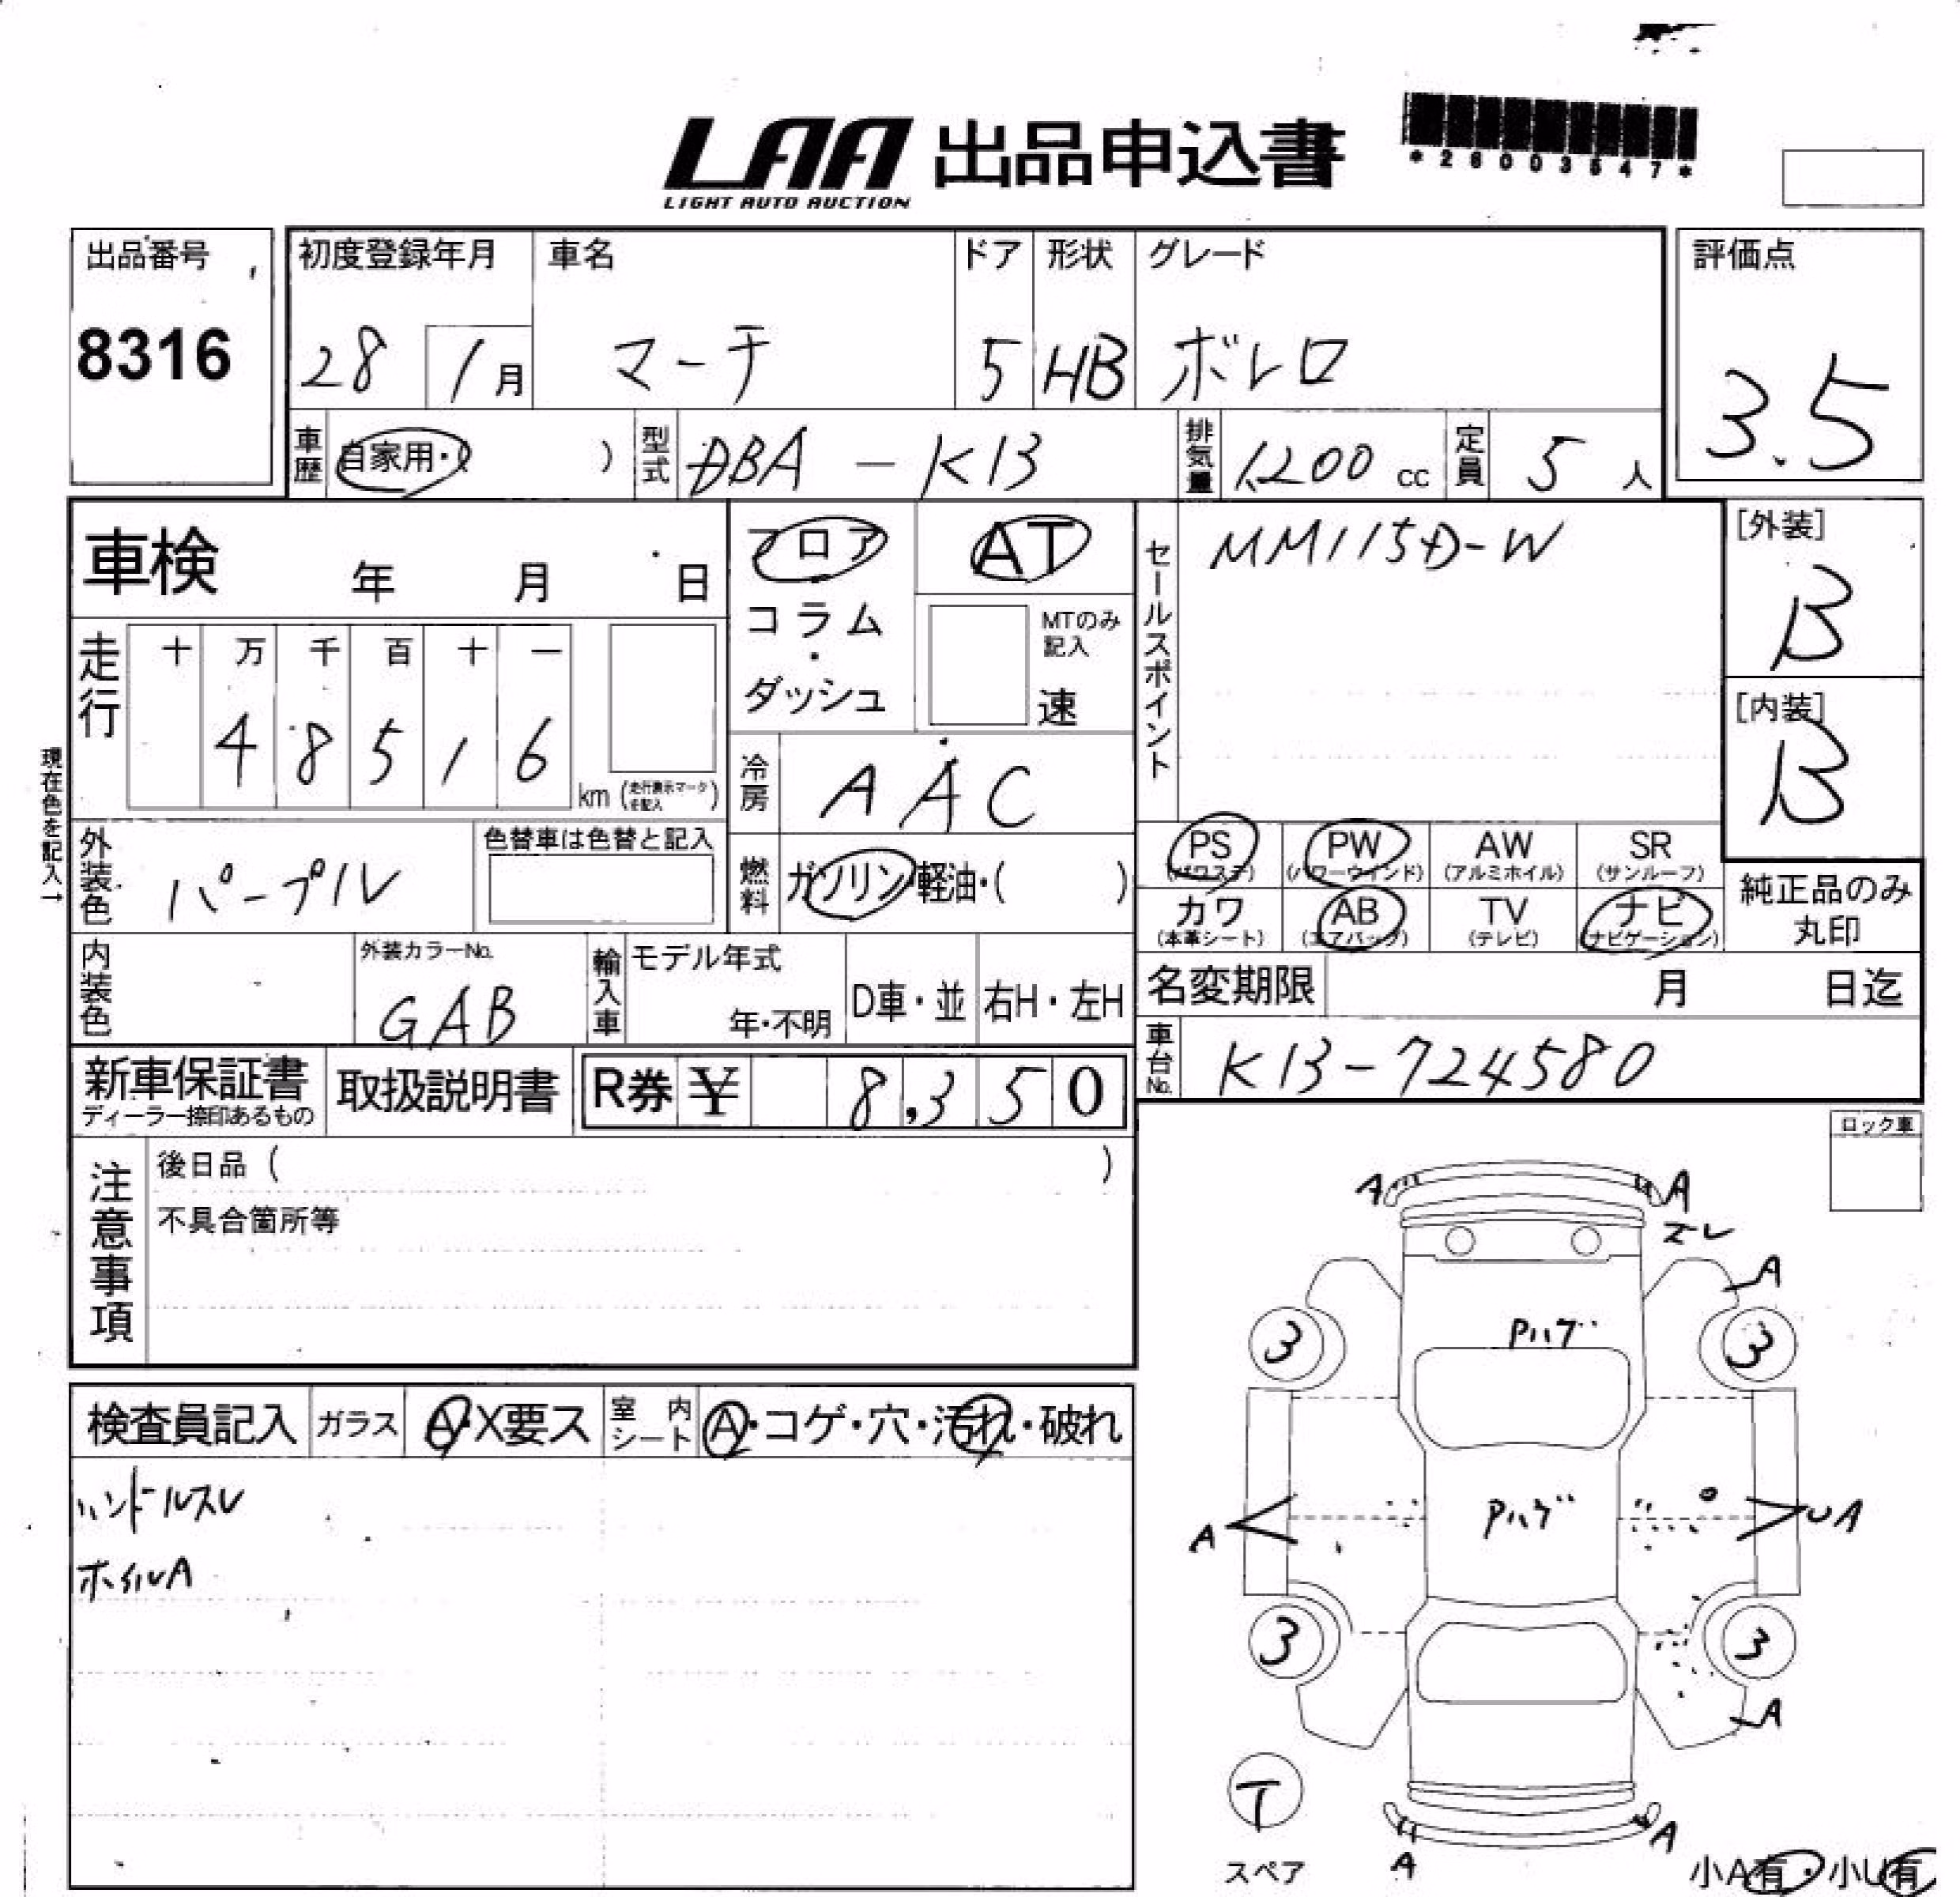 LAA 出品申込書
LIGHT AUTO AUCTION
*26003547*
出品番号
8316
初度登録年月 車名 ドア 形状 グレード
28 1月 マーチ 5 HB ボレロ
評価点
3.5
車歴 自家用・( ) 型式 DBA-K13 排気量 1,200 cc 定員 5人
車検 年 月 日
フロア
コラム
・
ダッシュ
AT
MTのみ
記入
速
セールスポイント
MM115D-W
[外装]
B
[内装]
B
走行
十 万 千 百 十 一
4 8 5 1 6
km (走行表示マークを記入)
冷房 AAC
現在色を記入→
外装色 パープル
色替車は色替と記入
燃料 ガソリン・軽油・( )
PS PW AW SR
(パワステ) (パワーウインド) (アルミホイル) (サンルーフ)
カワ AB TV ナビ
(本革シート) (エアバッグ) (テレビ) (ナビゲーション)
純正品のみ
丸印
内装色
外装カラーNo.
GAB
輸入車 モデル年式
年・不明 D車・並 右H・左H
名変期限 月 日迄
車台No. K13-724580
新車保証書
ディーラー捺印あるもの
取扱説明書
R券 ¥ 8,350
ロック車
注意事項
後日品 ( )
不具合箇所等
検査員記入 ガラス A・X要ス 室内シート A・コゲ・穴・汚れ・破れ
ハンドルスレ
ホイルA
A A
ズレ
A
3 3
Pハゲ
Pハゲ
A UA
3 3
A
T
スペア
A A
小A有・小U有